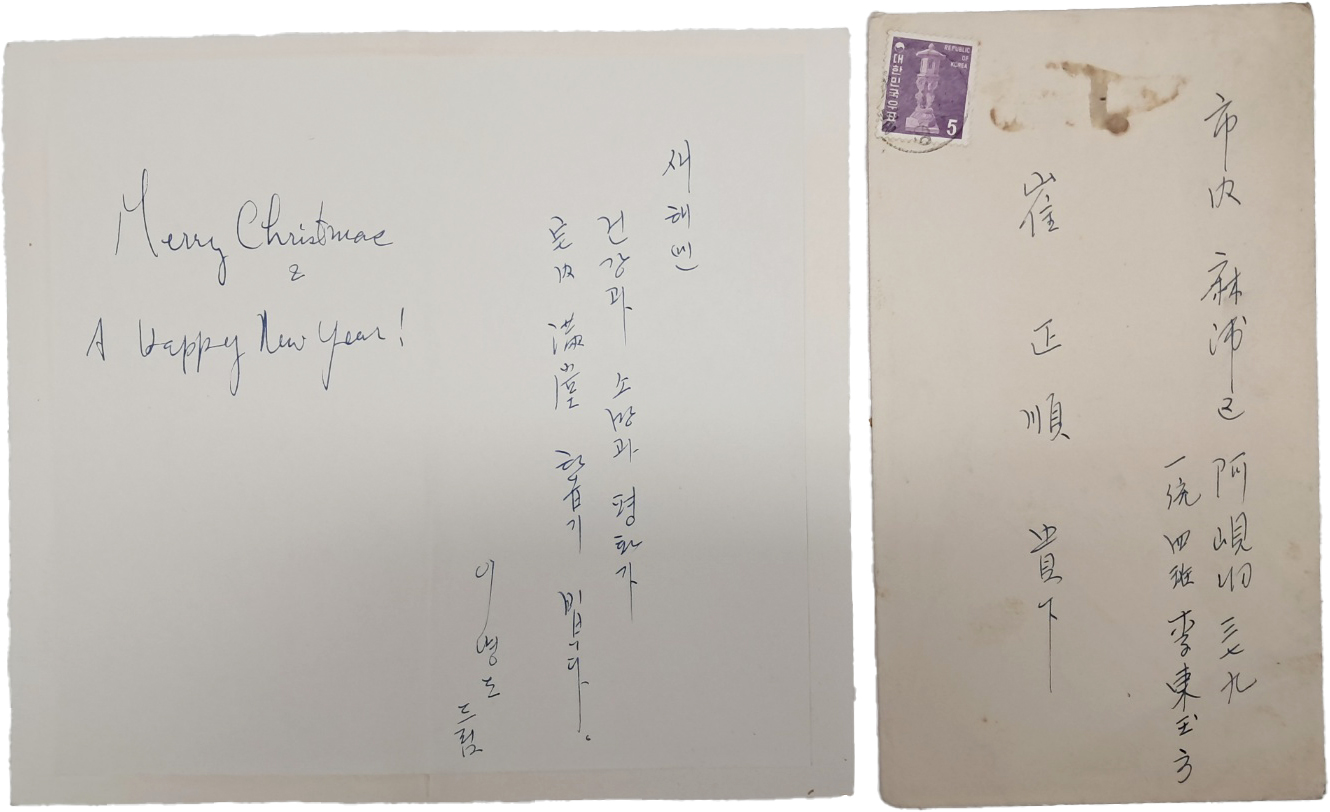 Merry Christmas
&
A Happy New Year!
새해엔
건강과 소망과 평화가
宅內 滿堂 하옵기 빕니다.
이영도
드림
대한민국우표
REPUBLIC
OF
KOREA
5
市內 麻浦区 阿峴洞 三七九
一统 四班 李東玉 方
崔正順 貴下